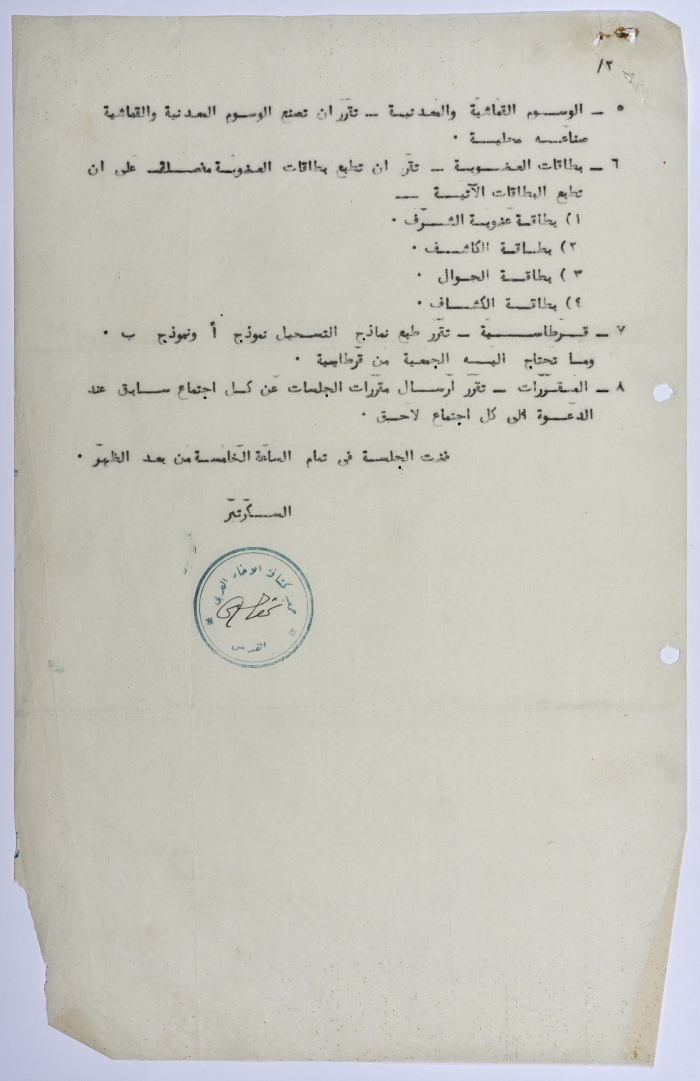 /٢
٥ ــ الوسوم القماشية والمعدنية ــ تقرر ان تصنع الوسوم المعدنية والقماشية
صناعه محلية ٠
٦ ــ بطاقات العضوية ــ تقرر ان تطبع بطاقات العضوية على ان
تطبع البطاقات الآتية ــ
١) بطاقة عضوية الشرف ٠
٢) بطاقة الكاشف ٠
٣) بطاقة الجوال ٠
٤) بطاقة الكشاف ٠
٧ ــ قرطاسية ــ تقرر طبع نماذج التسجيل نموذج أ ونموذج ب ٠
وما تحتاج اليه الجمعية من قرطاسية ٠
٨ ــ المقررات ــ تقرر ارسال مقررات الجلسات عن كل اجتماع سابق عند
الدعوة الى كل اجتماع لاحق ٠
فضت الجلسة في تمام الساعة الخامسة من بعد الظهر ٠
السكرتير
جمعية كشافة الاخاء العربي
القدس